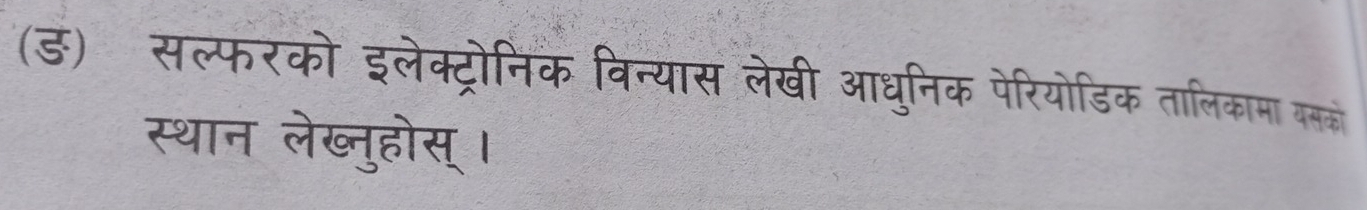 (ङ) सल्फरको इलेक्ट्रोनिक विन्यास लेखी आधुनिक पेरियोडिक तालिकामा यसको
स्थान लेख्नुहोस् ।